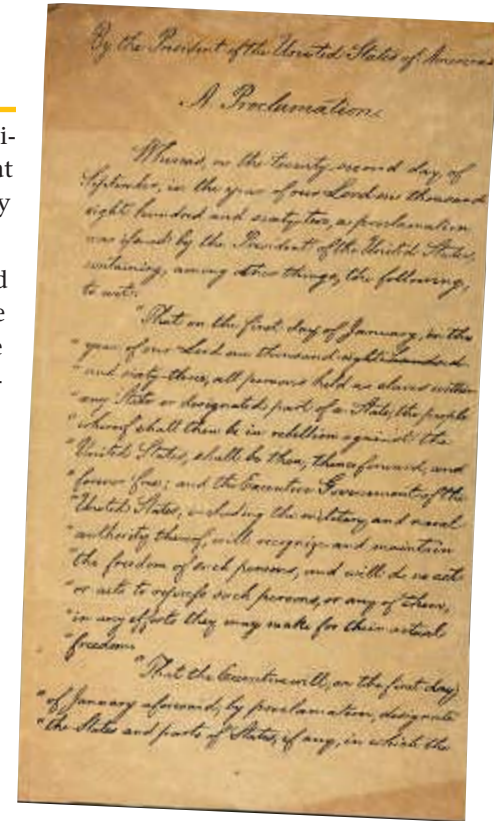 i-
at
y
d
e
e
.
By the President of the United States of America
A Proclamation.
Whereas, on the twenty-second day of
September, in the year of our Lord one thousand
eight hundred and sixty-two, a proclamation
was issued by the President of the United States,
containing, among other things, the following,
to wit:
"That on the first day of January, in the
"year of our Lord one thousand eight hundred
"and sixty-three, all persons held as slaves within
"any State or designated part of a State, the people
"whereof shall then be in rebellion against the
"United States, shall be then, thenceforward, and
"forever free; and the Executive Government of the
"United States, including the military and naval
"authority thereof, will recognize and maintain
"the freedom of such persons, and will do no act
"or acts to repress such persons, or any of them,
"in any efforts they may make for their actual
"freedom.
"That the Executive will, on the first day
"of January aforesaid, by proclamation, designate
"the States and parts of States, if any, in which the